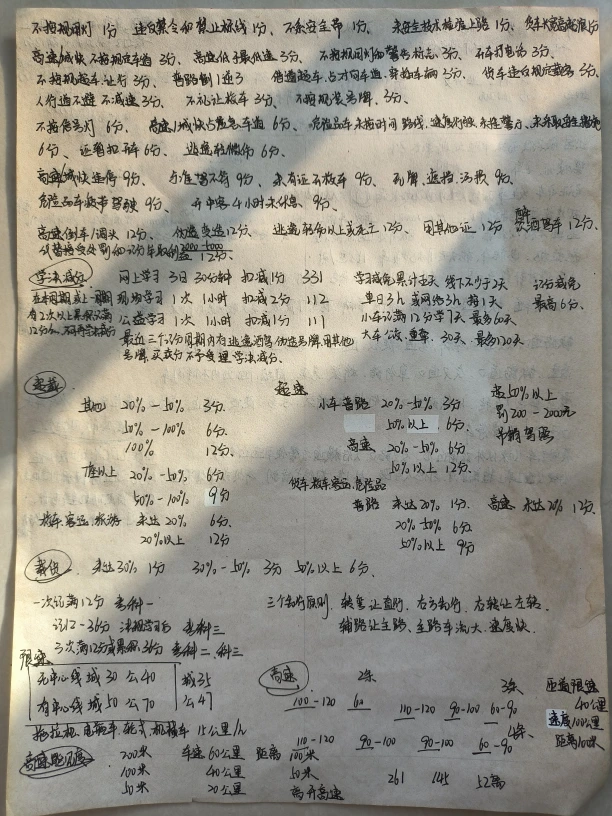 不按规用灯 1分 违反禁令和禁止标线 1分、不系安全带 1分、 1分
高速城快不按规定车道 3分、高速低于最低速 3分、不按规用灯和警告标志 3分、开车打电话 3分、
不按规超车让行 3分、普路倒、逆 3分 借道超车、占对向车道、穿插车辆 3分、货车违反规定载客 3分、
人行道不避不减速 3分、不礼让校车 3分、不按规装号牌 3分、
不按信号灯 6分、高速/城快占应急车道 6分、
6分、证暂扣开车 6分、逃逸轻微伤 6分、
高速城快违停 9分、与准驾不符 9分、未有证开校车 9分、无牌、遮挡、污损 9分、
危险品车疲劳驾驶 9分、开中客4小时未休息 9分、
高速倒车/调头 12分、伪造变造 12分、逃逸轻伤以上或死亡 12分、用其他证 12分 醉、饮酒驾车 12分、
代替接受处罚和记分牟取利益 12分、
学法减分 网上学习 3日 30分钟 扣减1分 331 学习减免累计 天 线下不少于2天 记分减免
现场学习 1次 1小时 扣减2分 112 单日3h 或网络3h 抵1天 最高6分、
公益学习 1次 1小时 扣减1分 111 小车记满12分学7天 最多60天
最近三个记分周期内有逃逸酒驾伪造号牌、用其他 大车 30天、最多120天
号牌、买卖分不予受理学法减分、
超载 超速
其他 20%-50% 3分、 小车普路 20%-50% 3分 超50%以上
50%-100% 6分、 50%以上 6分、 罚200-2000元
100% 12分、 高速 20%-50% 6分、 吊销驾照
7座以上 20%-50% 6分 50%以上 12分、
50%-100% 9分 货车校车客运、危险品
校车、客运、旅游 未达20% 6分、 普路 未达20% 1分、 高速 未达20% 12分、
20%以上 12分 20%-50% 6分
50%以上 9分
载货 未达30% 1分 30%-50% 3分 50%以上 6分、
一次记满12分 考科一 三个 原则、转弯让直行、右方先行、右转让左转、
记12-36分 考科三 辅路让主路、主路车流大、速度快、
三次满12分或累积36分 考科二、科三
限速
无中心线 城30 公40 城35 高速 2条 3条
有中心线 城50 公70 公47 100-120 60- 110-120 90-100 60-90 40公里
拖拉机、电瓶车、轮式、机械车 15公里/h 4条 速度100公里
高速能见度 200米 车速60公里 距离100米 110-120 90-100 90-100 60-90 距离100米
100米 40公里 50米 261 145 52高
50米 20公里 离开高速